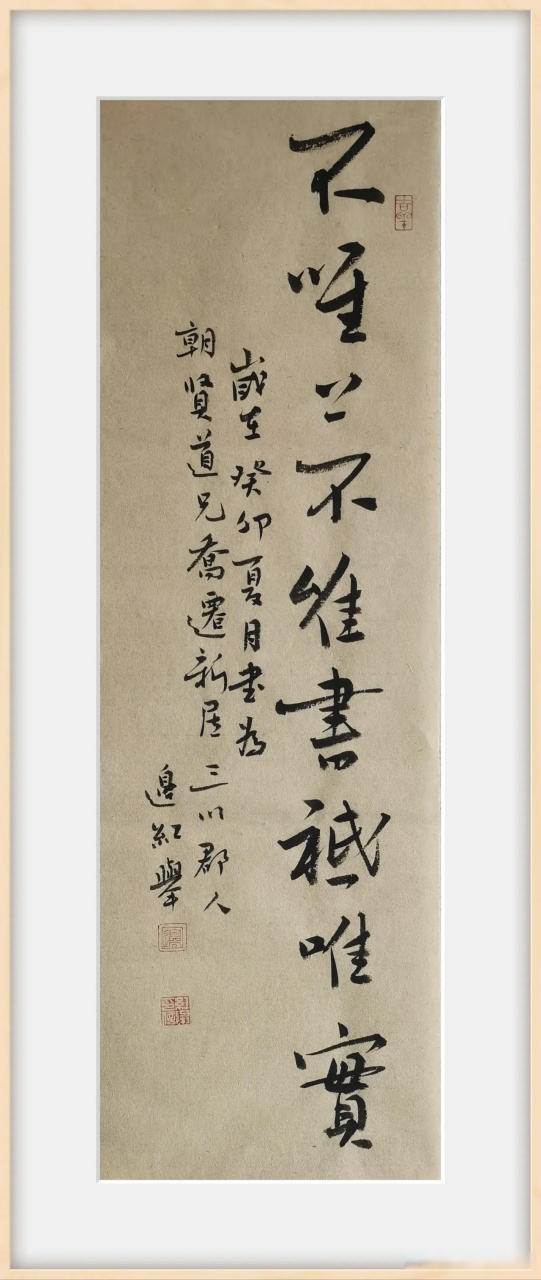 不唯上不唯書祗唯實
歲在癸卯夏月書為
朝賢道兄喬遷新居三川郡人
邊紅舉